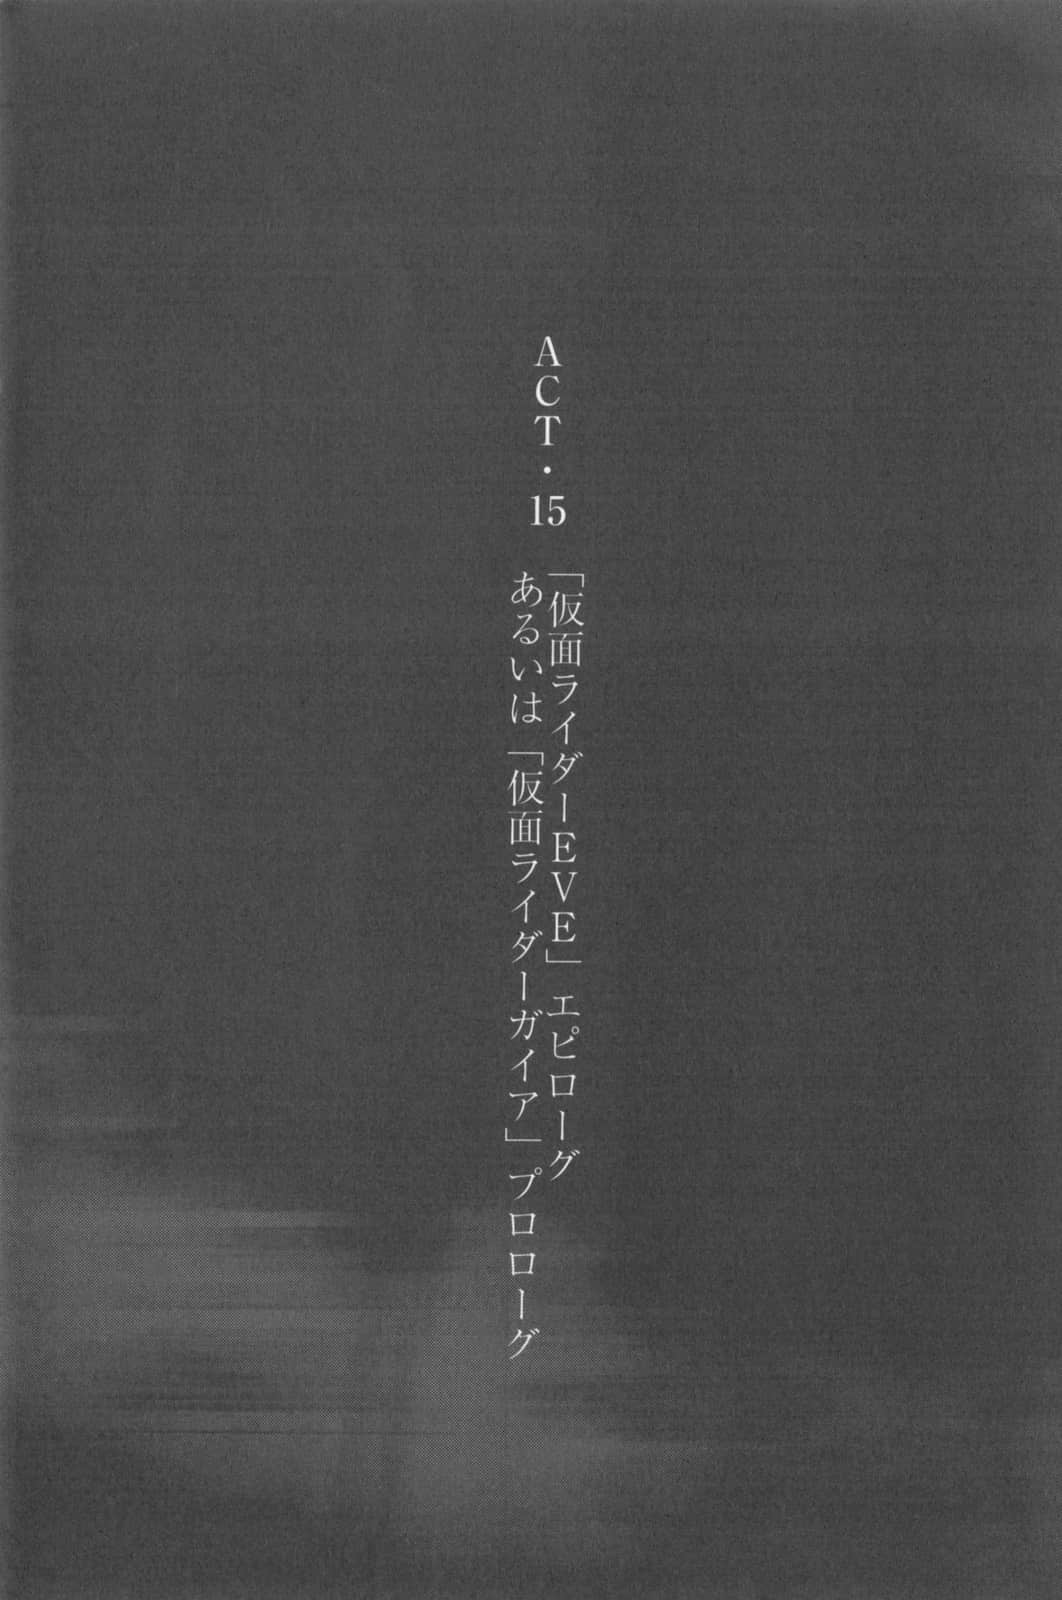 ACT・15
「仮面ライダーEVE」エピローグ
あるいは「仮面ライダーガイア」プロローグ